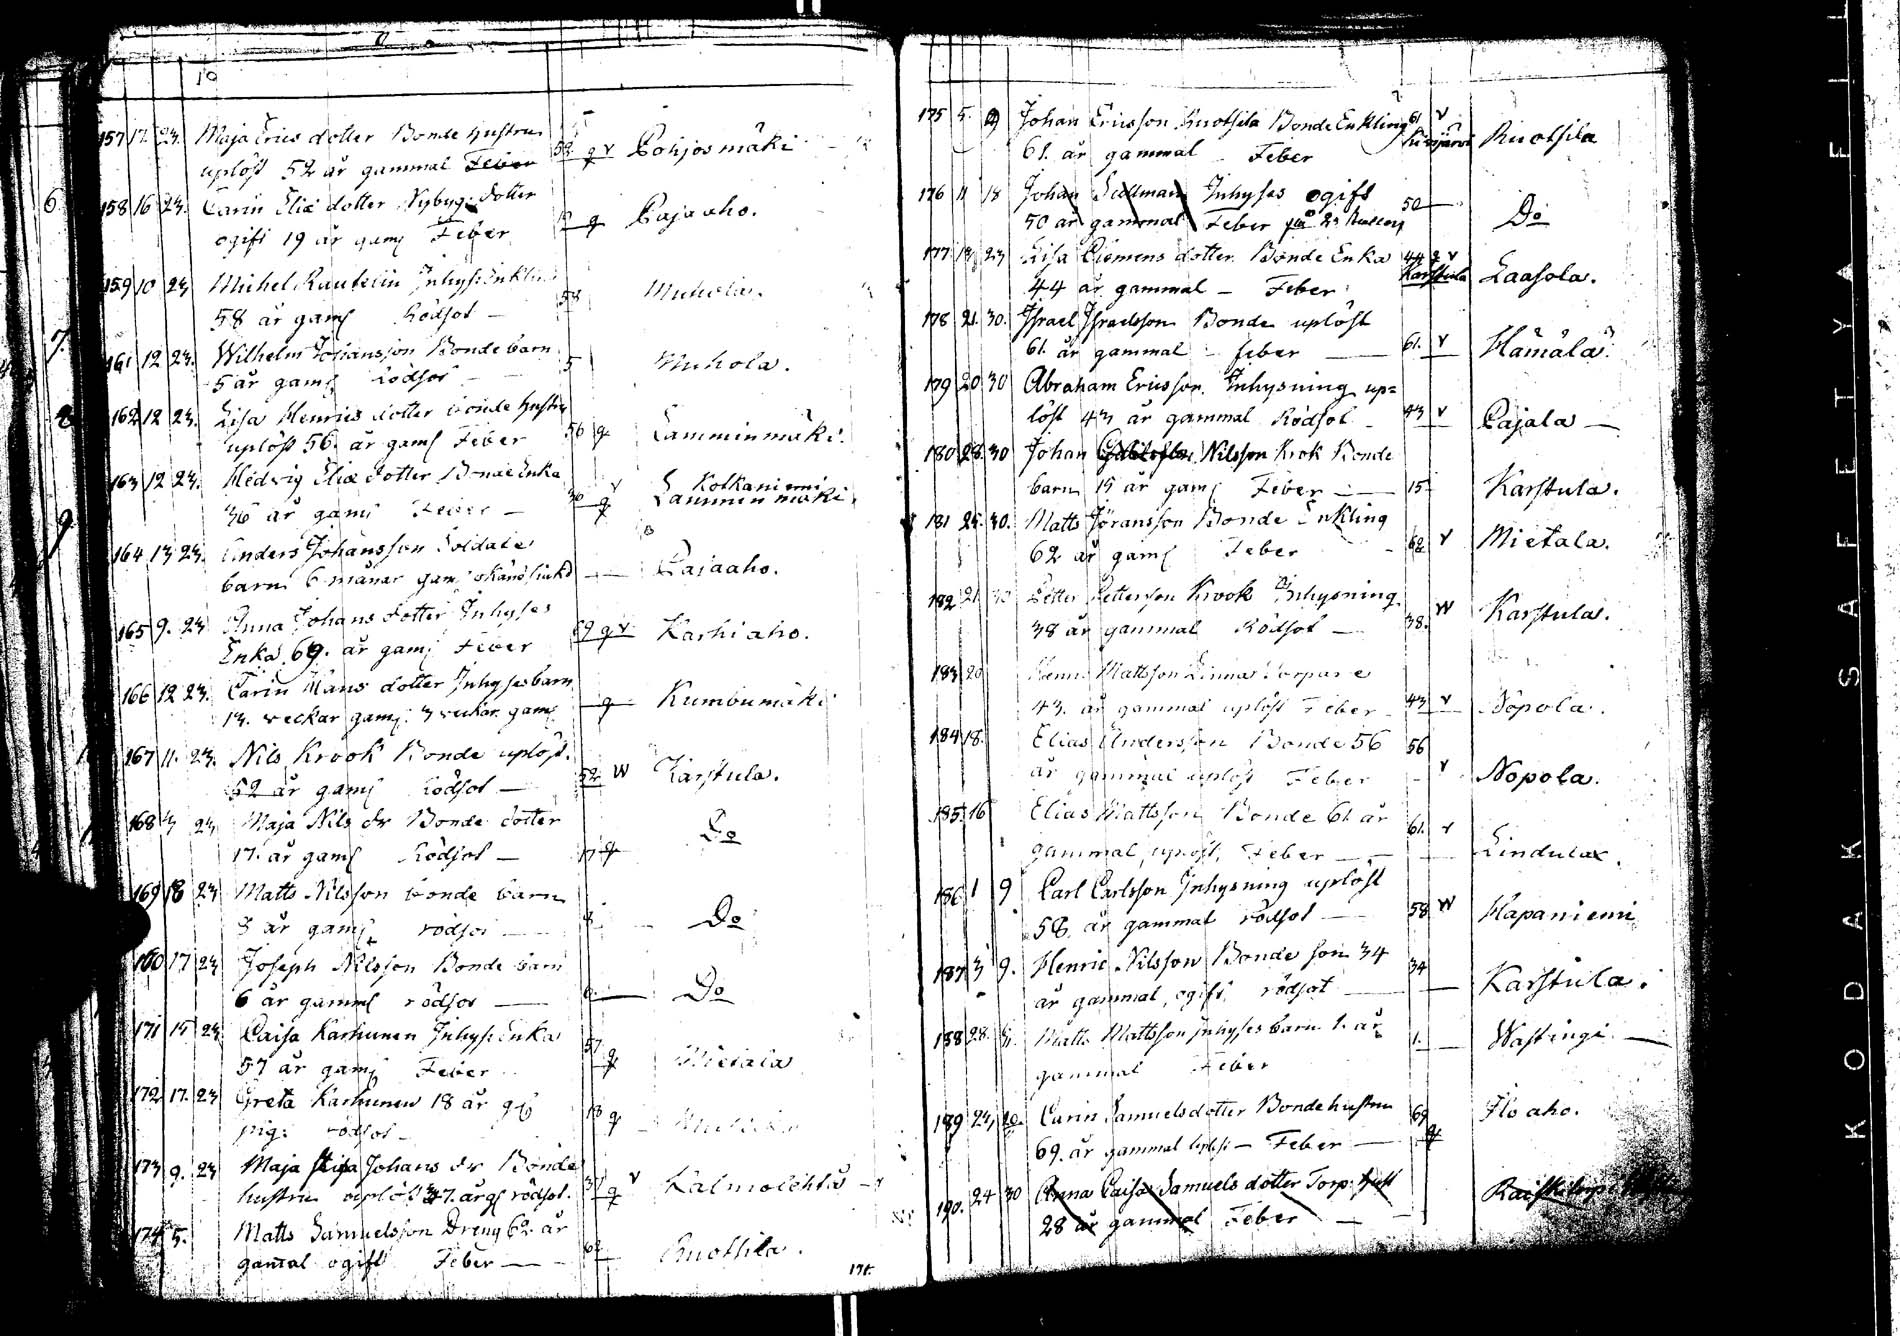 10
157 17. 23. Maja Erics dotter Bonde hustru
uplöst 52 år gammal Feber 52 q v Pohjosmäki
6. 158 16 23. Carin Eliæ dotter Nybyg. dotter
ogift 19 år gam| Feber 19 q Pajaaho.
159 10 23 Michel Rautelin Inhyse Enkling
58 år gam| Rödsot — 58 Muhola.
7.
161 12 23. Wilhelm Johansson Bonde barn
5 år gam| Rödsot 5 Muhola.
8 162 12 23. Lisa Henrics dotter bonde hustru
uplöst 56. år gam| Feber 56 q Lamminmäki.
163 12 23. Hedvig Eliæ dotter Bonde Enka Kolkaniemi
36 år gam| Feber — 36 q v Lamminmäki.
9.
164 13 23. Anders Johansson Soldate
barn 6 månar gam| okänd siukd — Pajaaho.
165 9. 23 Anna Johans dotter Inhyses
Enka. 69. år gam| Feber 69 q v Karhiaho.
166 12 23. Carin Mans dotter Inhyses barn
13. veckar gam|. 3 veckar gam| q Kumbumäki
167 11. 23. Nils Krook Bonde uplöst.
52 år gam| Rödsot — 52 W Karstula.
168 23 Maja Nils dr Bonde dotter
17. år gam| Rödsot — 17 q Do
169 18 23 Matts Nilsson bonde barn
8 år gam| rödsot — 8 Do
160 17 23 Joseph Nilsson Bonde barn
6 år gamm| rödsot — 6. Do
171 15 23 Caisa Karhunen Inhyse Enka
57 år gam| Feber 57 q Mietala
172 17. 23 Greta Karhunen 18 år
pig: rödsot — 18 q
173 9. 23 Maja Lisa Johans dr Bonde
hustru uplöst 37. år g| rödsot. 37 q v Kalmolehto
174 5. Matts Samuelsson Dreng 62. år
gamal ogift Feber — 62 Ruotsila.
175.
175 5. 9 Johan Ericsson Ruotsila Bonde Enkling 61 v
61. år gammal Feber Kivijärvi Ruotsila
176 11 18 Johan Inhyses ogift
50 år gammal Feber 50 — Do
177 18 23 Lisa Clemens dotter. Bonde Enka 44 q v
44 år gammal — Feber Karstula Laasola.
178 21. 30. Israel Israelsson Bonde uplöst
61. år gammal — feber — 61. v Hämälä.
179 20 30 Abraham Ericsson. Inhysning up=
löst 43 år gammal Rödsot — 43 v Pajala —
180 28. 30 Johan Nilsson Krok Bonde
barn 15 år gam| Feber — 15 Karstula.
181 25. 30. Matts Jöransson Bonde Enkling
62 år gam| Feber 62 v Mietala.
182 21. 30 Petter Pettersson Krook Inhysning
38 år gammal Rödsot — 38. W Karstula.
183 20 Mattsson Linna Torpare
43. år gammal uplöst Feber 43 v Nopola.
184 18. Elias Andersson Bonde 56 56
år gammal uplöst Feber v Nopola.
185. 16 Elias Mattsson Bonde 61 år
gammal, uplöst, Feber — 61. v Lindulax.
186 1 9 Carl Carlsson Inhysning uplöst
58. år gammal rödsot — 58 W Hapaniemi
187 3 9. Henric Nilsson Bonde son 34 34
år gammal, ogift, rödsot — Karstula.
188 28. Matts Mattsson Inhyses barn 1. år
gammal Feber 1. — Wastingi —
189 23, 20. Carin Samuelsdotter Bondehustru
69. år gammal uplöst — Feber — 69 q Iloaho.
190. 24 30 Anna Caisa Samuels dotter Torp. hust
28 år gammal Feber —
KODAK SAFETY A FIL